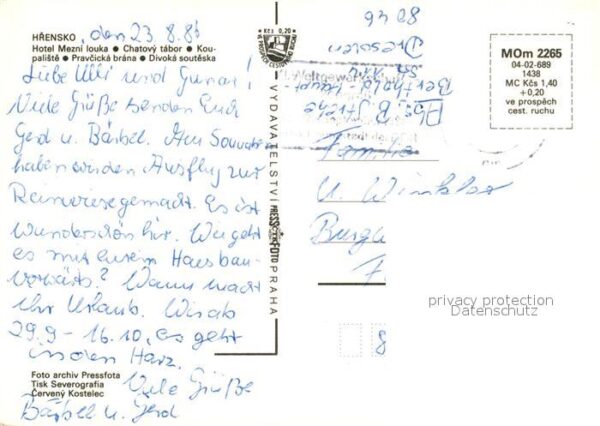 HŘENSKO, den 23.8.86
Hotel Mezní louka ● Chatový tábor ● Kou-
paliště ● Pravčická brána ● Divoká soutěska
Liebe Ulli und Gunar!
Viele Grüße senden Euch
Gerd u. Bärbel. Am
haben wir den Ausflug zur
gemacht. Es ist
wunderschön hier. Wie geht
es mit eurem Hausbau
vorwärts? Wann macht
Ihr Urlaub. Wir ab
29.9 - 16.10, es geht
in den Harz.
Viele Grüße
Bärbel u. Gerd
Foto archiv Pressfota
Tisk Severografia
Červený Kostelec
VYDAVATELSTVÍ PRESSFOTO PRAHA
Kčs 0,20
MOm 2265
04-02-689
1438
MC Kčs 1,40
+0,20
ve prospěch
cest. ruchu
Abs. B.
Berthold-Haupt-
Str.
Dresden
8046
Familie
U. Winkler
8
privacy protection
Datenschutz